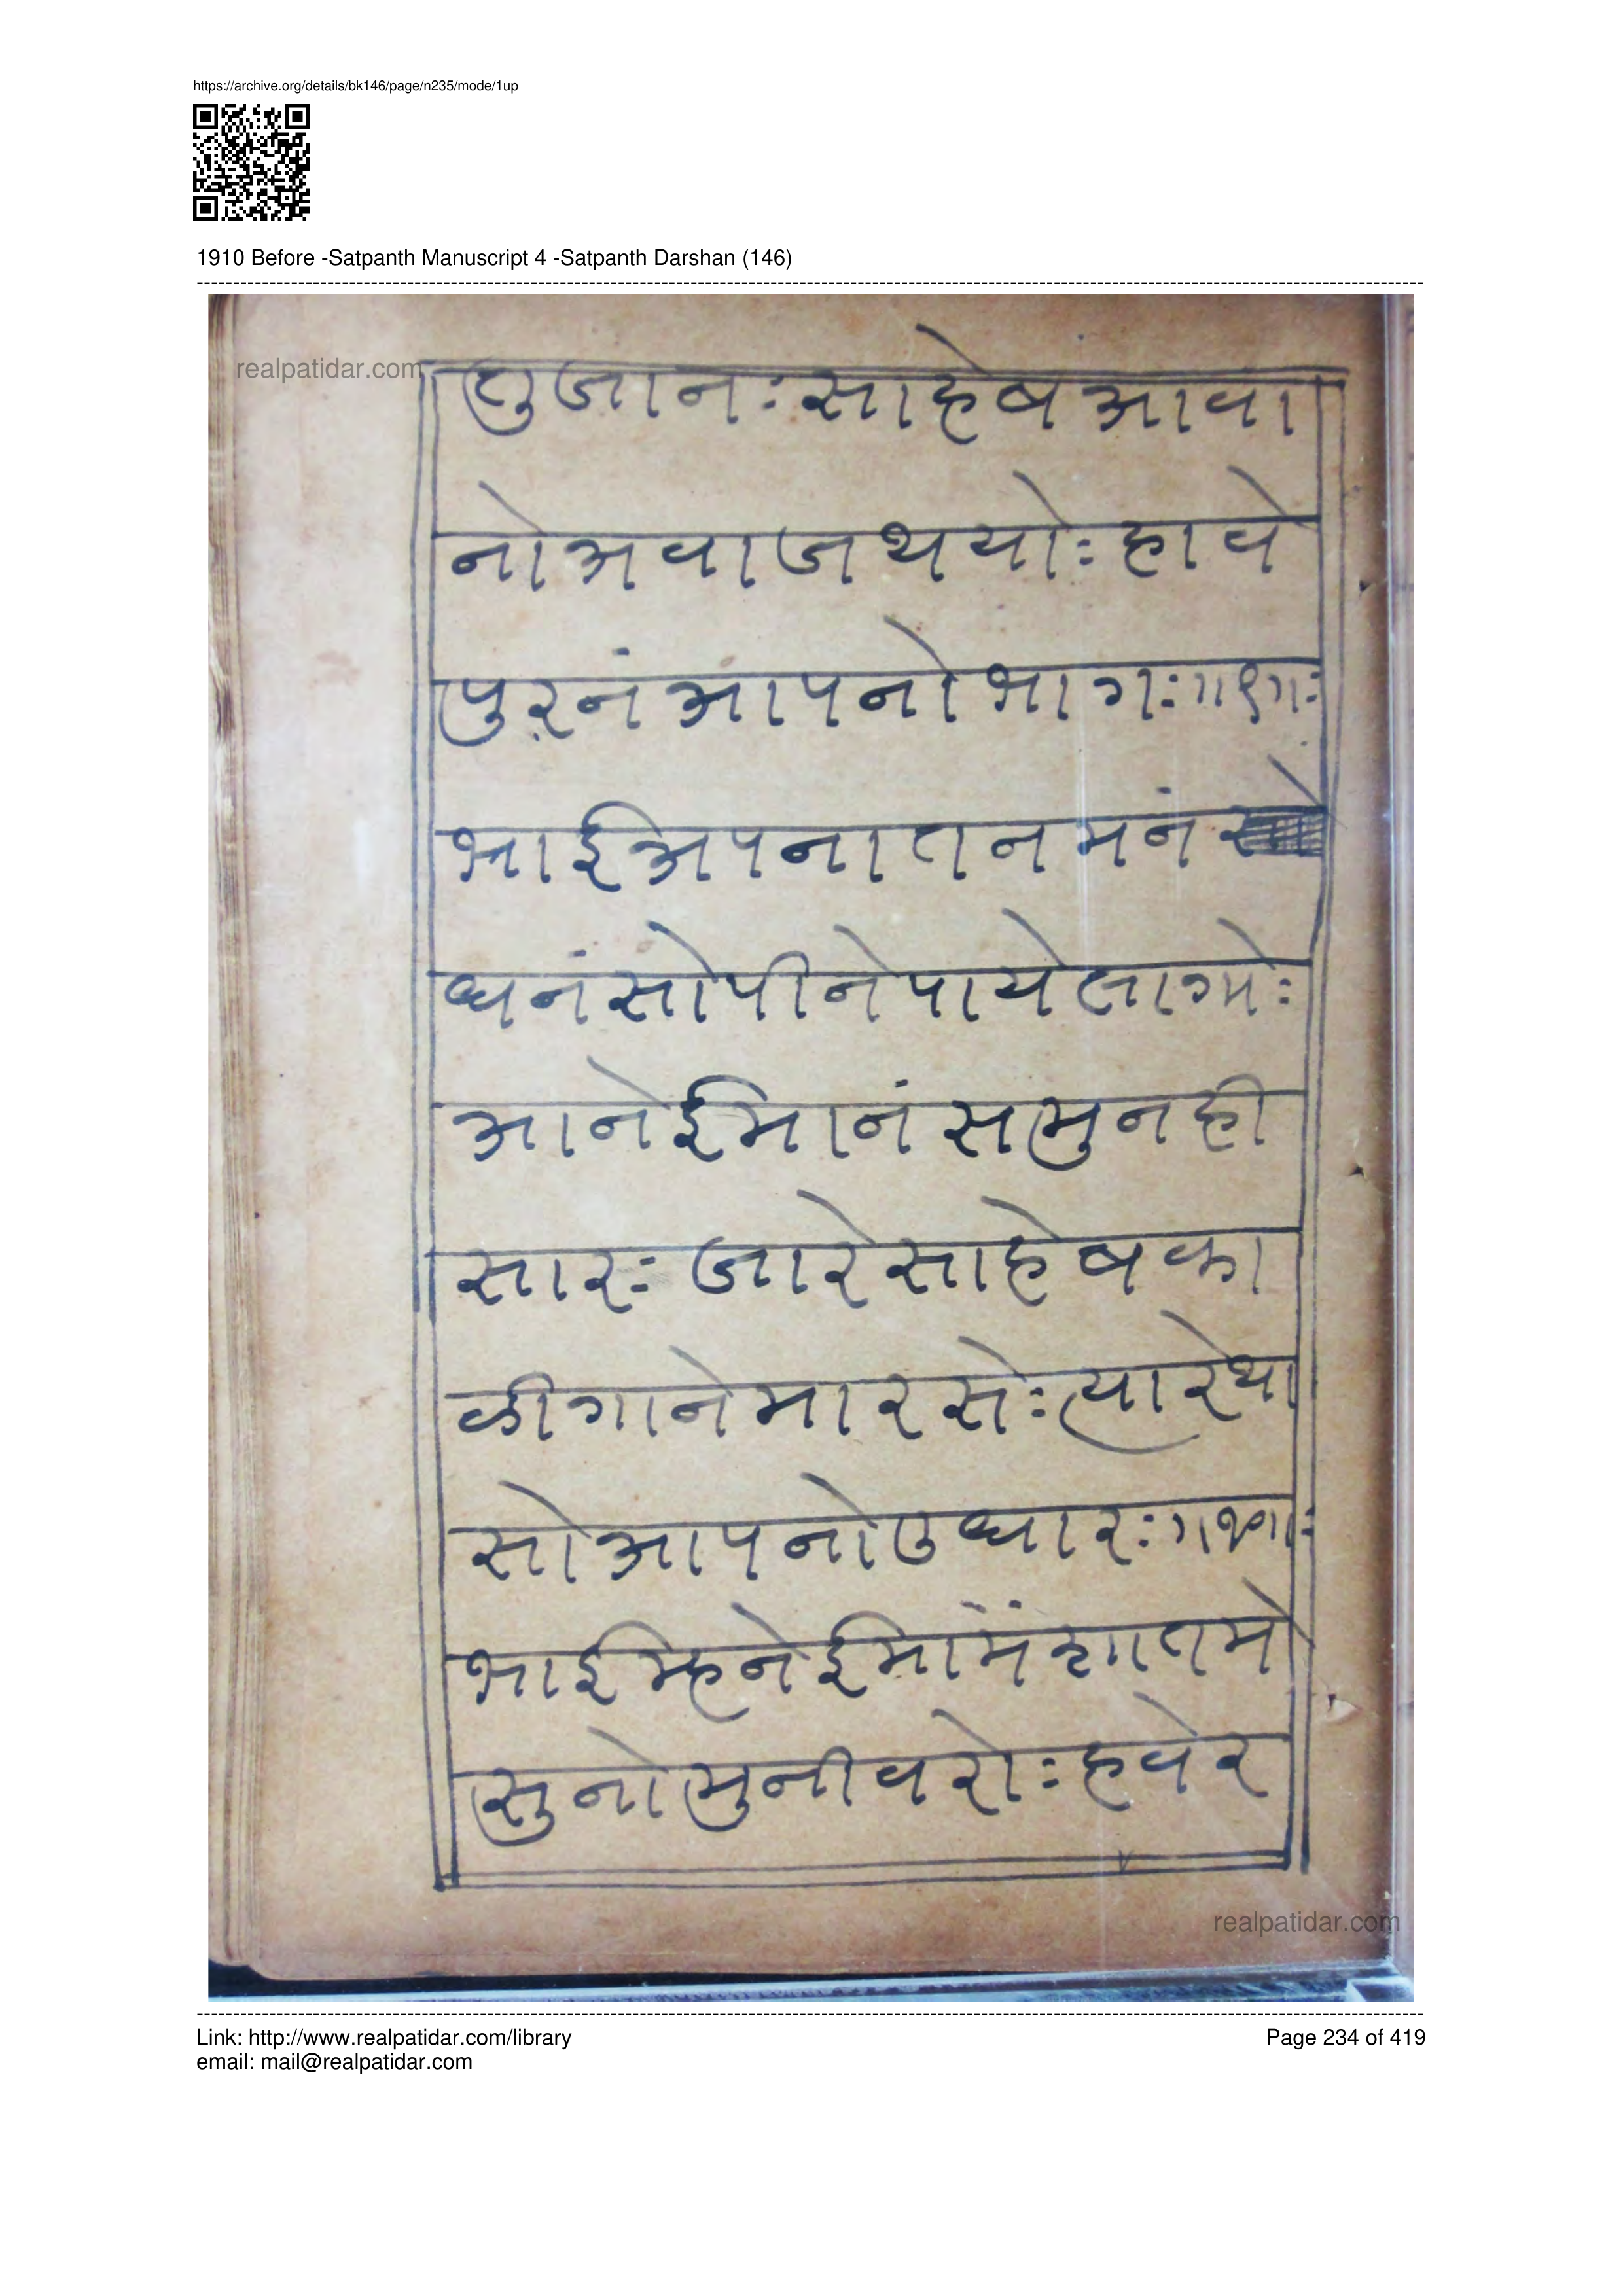 https://archive.org/details/bk146/page/n235/mode/1up
1910 Before -Satpanth Manuscript 4 -Satpanth Darshan (146)
realpatidar.com
सुजानः साहेब आवा
नो अवाज थयोः हावे
पुरनं आपनो भागः ॥९॥ः
भाई अपना तन मनं
धनं सोपीने पाये लागोः
आने ईमानं समु नही
सारः जारे साहेब का
ळीगाने मारसेः त्यारे था
सो आपनो उधारः
भाई म्हने ईमांमं शातमो
सुनो मुनीवरोः हवे र
realpatidar.com
Link: http://www.realpatidar.com/library
Page 234 of 419
email: mail@realpatidar.com